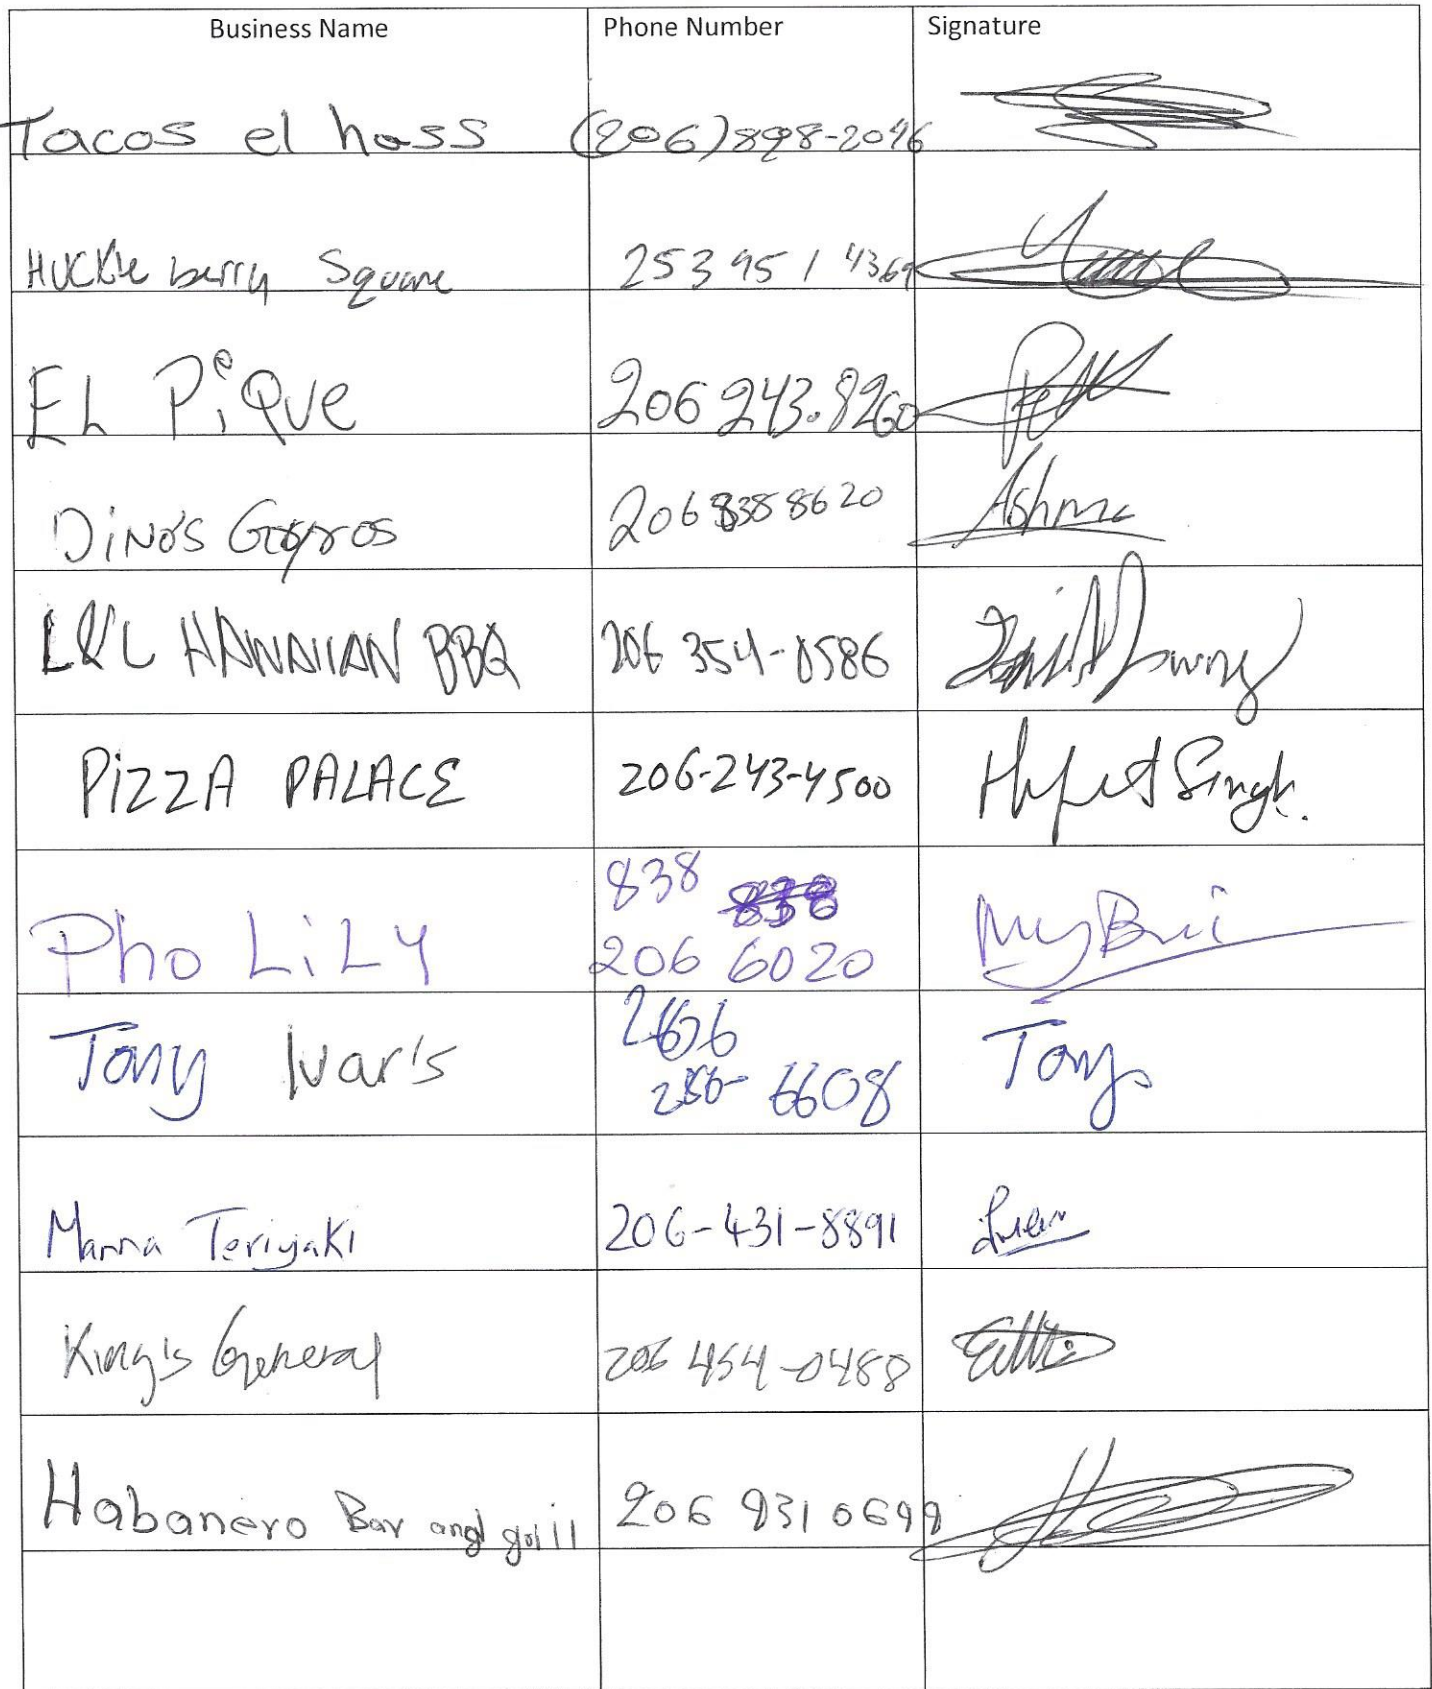 Business Name Phone Number Signature
Tacos el hass (206)898-2046
Huckle berry Square 253 951 4369
EL PiQue 206 243.8260
DiNo's Gyros 206 838 8620 Ashma
L&L HAWAIIAN BBQ 206 354-0586
PiZZA PALACE 206-243-4500 Singh.
838
Pho LiLY 206 6020 My Bui
206
Tony Ivar's 6608 Tony
Manna Teriyaki 206-431-8891
King's General 206 454-0488
Habanero Bar and grill 206 931 0699